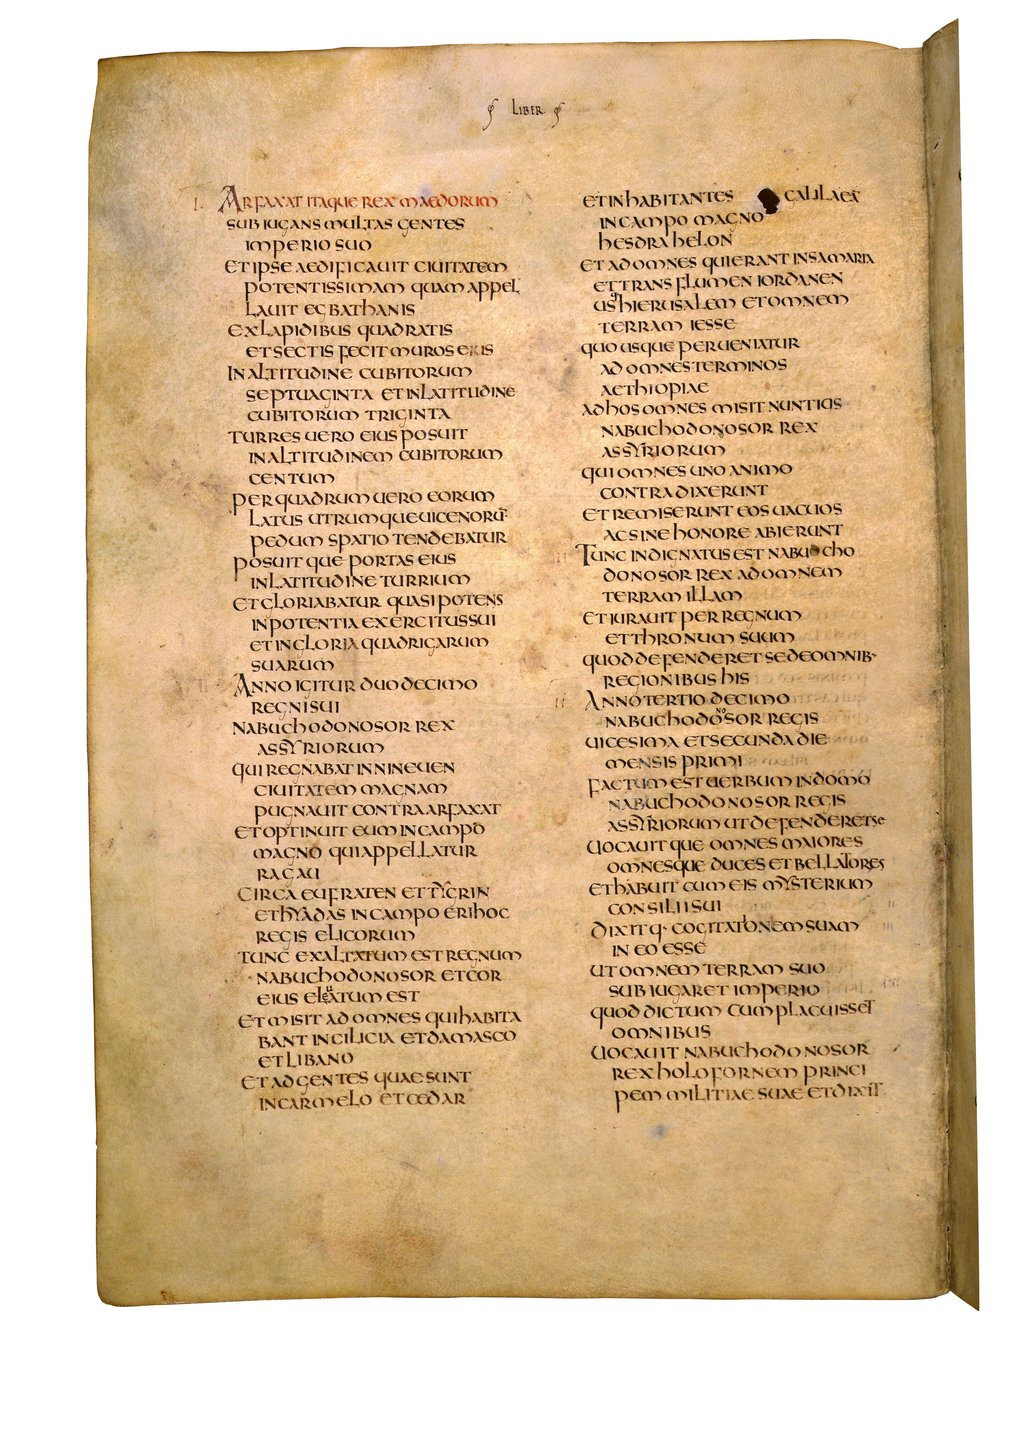 LIBER
I. ARFAXAT ITAQUE REX MAEDORUM
SUBIUGANS MULTAS GENTES
IMPERIO SUO
ET IPSE AEDIFICAUIT CIUITATEM
POTENTISSIMAM QUAM APPEL
LAUIT EGBATHANIS
EX LAPIDIBUS QUADRATIS
ET SECTIS FECIT MUROS EIUS
IN ALTITUDINE CUBITORUM
SEPTUAGINTA ET IN LATITUDINE
CUBITORUM TRIGINTA
TURRES UERO EIUS POSUIT
IN ALTITUDINEM CUBITORUM
CENTUM
PER QUADRUM UERO EORUM
LATUS UTRUMQUE UICENORŪ
PEDUM SPATIO TENDEBATUR
POSUITQUE PORTAS EIUS
IN LATITUDINE TURRIUM
ET GLORIABATUR QUASI POTENS
IN POTENTIA EXERCITUS SUI
ET IN GLORIA QUADRIGARUM
SUARUM
ANNO IGITUR DUODECIMO
REGNI SUI
NABUCHODONOSOR REX
ASSYRIORUM
QUI REGNABAT IN NINEUEN
CIUITATEM MAGNAM
PUGNAUIT CONTRA ARFAXAT
ET OPTINUIT EUM IN CAMPO
MAGNO QUI APPELLATUR
RAGAU
CIRCA EUFRATEN ET TYGRIN
ET HYADAS IN CAMPO ERIHOC
REGIS ELICORUM
TUNC EXALTATUM EST REGNUM
NABUCHODONOSOR ET COR
EIUS ELEUATUM EST
ET MISIT AD OMNES QUI HABITA
BANT IN CILICIA ET DAMASCO
ET LIBANO
ET AD GENTES QUAE SUNT
IN CARMELO ET CEDAR
ET INHABITANTES GALILAEA
IN CAMPO MAGNO
HESDRAHELON
ET AD OMNES QUI ERANT IN SAMARIA
ET TRANS FLUMEN IORDANEN
USQ HIERUSALEM ET OMNEM
TERRAM IESSE
QUOUSQUE PERUENIATUR
AD OMNES TERMINOS
AETHIOPIAE
AD HOS OMNES MISIT NUNTIUS
NABUCHODONOSOR REX
ASSYRIORUM
QUI OMNES UNO ANIMO
CONTRADIXERUNT
ET REMISERUNT EOS UACUOS
AC SINE HONORE ABIERUNT
TUNC INDIGNATUS EST NABUCHO
DONOSOR REX AD OMNEM
TERRAM ILLAM
ET IURAUIT PER REGNUM
ET THRONUM SUUM
QUOD DEFENDERET SE DE OMNIB·
REGIONIBUS HIS
II ANNO TERTIO DECIMO
NABUCHODONOSOR REGIS
UICESIMA ET SECUNDA DIE
MENSIS PRIMI
FACTUM EST UERBUM IN DOMO
NABUCHODONOSOR REGIS
ASSYRIORUM UT DEFENDERET SE
UOCAUITQUE OMNES MAIORES
OMNESQUE DUCES ET BELLATORES
ET HABUIT CUM EIS MYSTERIUM
CONSILII SUI
DIXITQ· COGITATIONEM SUAM
IN EO ESSE
UT OMNEM TERRAM SUO
SUBIUGARET IMPERIO
QUOD DICTUM CUM PLACUISSET
OMNIBUS
UOCAUIT NABUCHODONOSOR
REX HOLOFORNEM PRINCI
PEM MILITIAE SUAE ET DIXIT